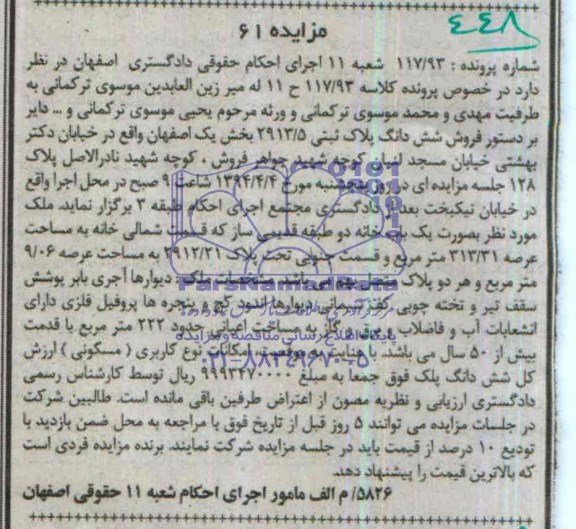 ۴۴۸
مزایده ۶۱
شماره پرونده : ۱۱۷/۹۳ شعبه ۱۱ اجرای احکام حقوقی دادگستری اصفهان در نظر
دارد در خصوص پرونده کلاسه ۱۱۷/۹۳ ح ۱۱ له میر زین العابدین موسوی ترکمانی به
طرفیت مهدی و محمد موسوی ترکمانی و ورثه مرحوم یحیی موسوی ترکمانی و ... دایر
بر دستور فروش شش دانگ پلاک ثبتی ۲۹۱۳/۵ بخش یک اصفهان واقع در خیابان دکتر
بهشتی خیابان مسجد لنبان کوچه شهید جواهر فروش ، کوچه شهید نادرالاصل پلاک
۱۲۸ جلسه مزایده ای در روز پنجشنبه مورخ ۱۳۹۴/۴/۴ شاعت ۹ صبح در محل اجرا واقع
در خیابان نیکبخت بعد از دادگستری مجتمع اجرای احکام طبقه ۳ برگزار نماید. ملک
مورد نظر بصورت یک باب خانه دو طبقه قدیمی ساز که قسمت شمالی خانه به مساحت
عرصه ۳۱۳/۳۱ متر مربع و قسمت جنوبی تحت پلاک ۲۹۱۲/۲۱ به مساحت عرصه ۹/۰۶
متر مربع و هر دو پلاک متصل بهم می باشد. مشخصات ملک: دیوارها آجری بابر پوشش
سقف تیر و تخته چوبی کف سیمانی دیوارها اندود گچ و پنجره ها پروفیل فلزی دارای
انشعابات آب و فاضلاب و برق و گاز به مساحت اعیانی حدود ۲۲۲ متر مربع با قدمت
بیش از ۵۰ سال می باشد. با عنایت به موقعیت، امکانات نوع کاربری ( مسکونی ) ارزش
کل شش دانگ پلک فوق جمعا به مبلغ ۹۹۹۳۴۷۰۰۰۰ ریال توسط کارشناس رسمی
دادگستری ارزیابی و نظریه مصون از اعتراض طرفین باقی مانده است. طالبین شرکت
در جلسات مزایده می توانند ۵ روز قبل از تاریخ فوق با مراجعه به محل ضمن بازدید با
تودیع ۱۰ درصد از قیمت پایه در جلسه مزایده شرکت نمایند. برنده مزایده فردی است
که بالاترین قیمت را پیشنهاد دهد.
۵۸۲۶/ م الف مامور اجرای احکام شعبه ۱۱ حقوقی اصفهان
ParsNamadData
پایگاه اطلاع رسانی مناقصه و مزایده
۰۲۱-۸۸۳۴۹۶۷۰-۵